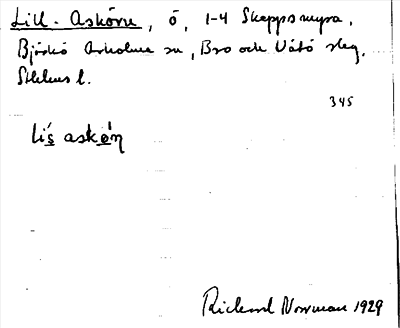 Lill-Askören, ö, 1-4 Skeppsmyra,
Björkö Arholma sn, Bro och Vätö skg.
Sthlms l.
345
li̇́s askö́n
Rickard Norrman 1929